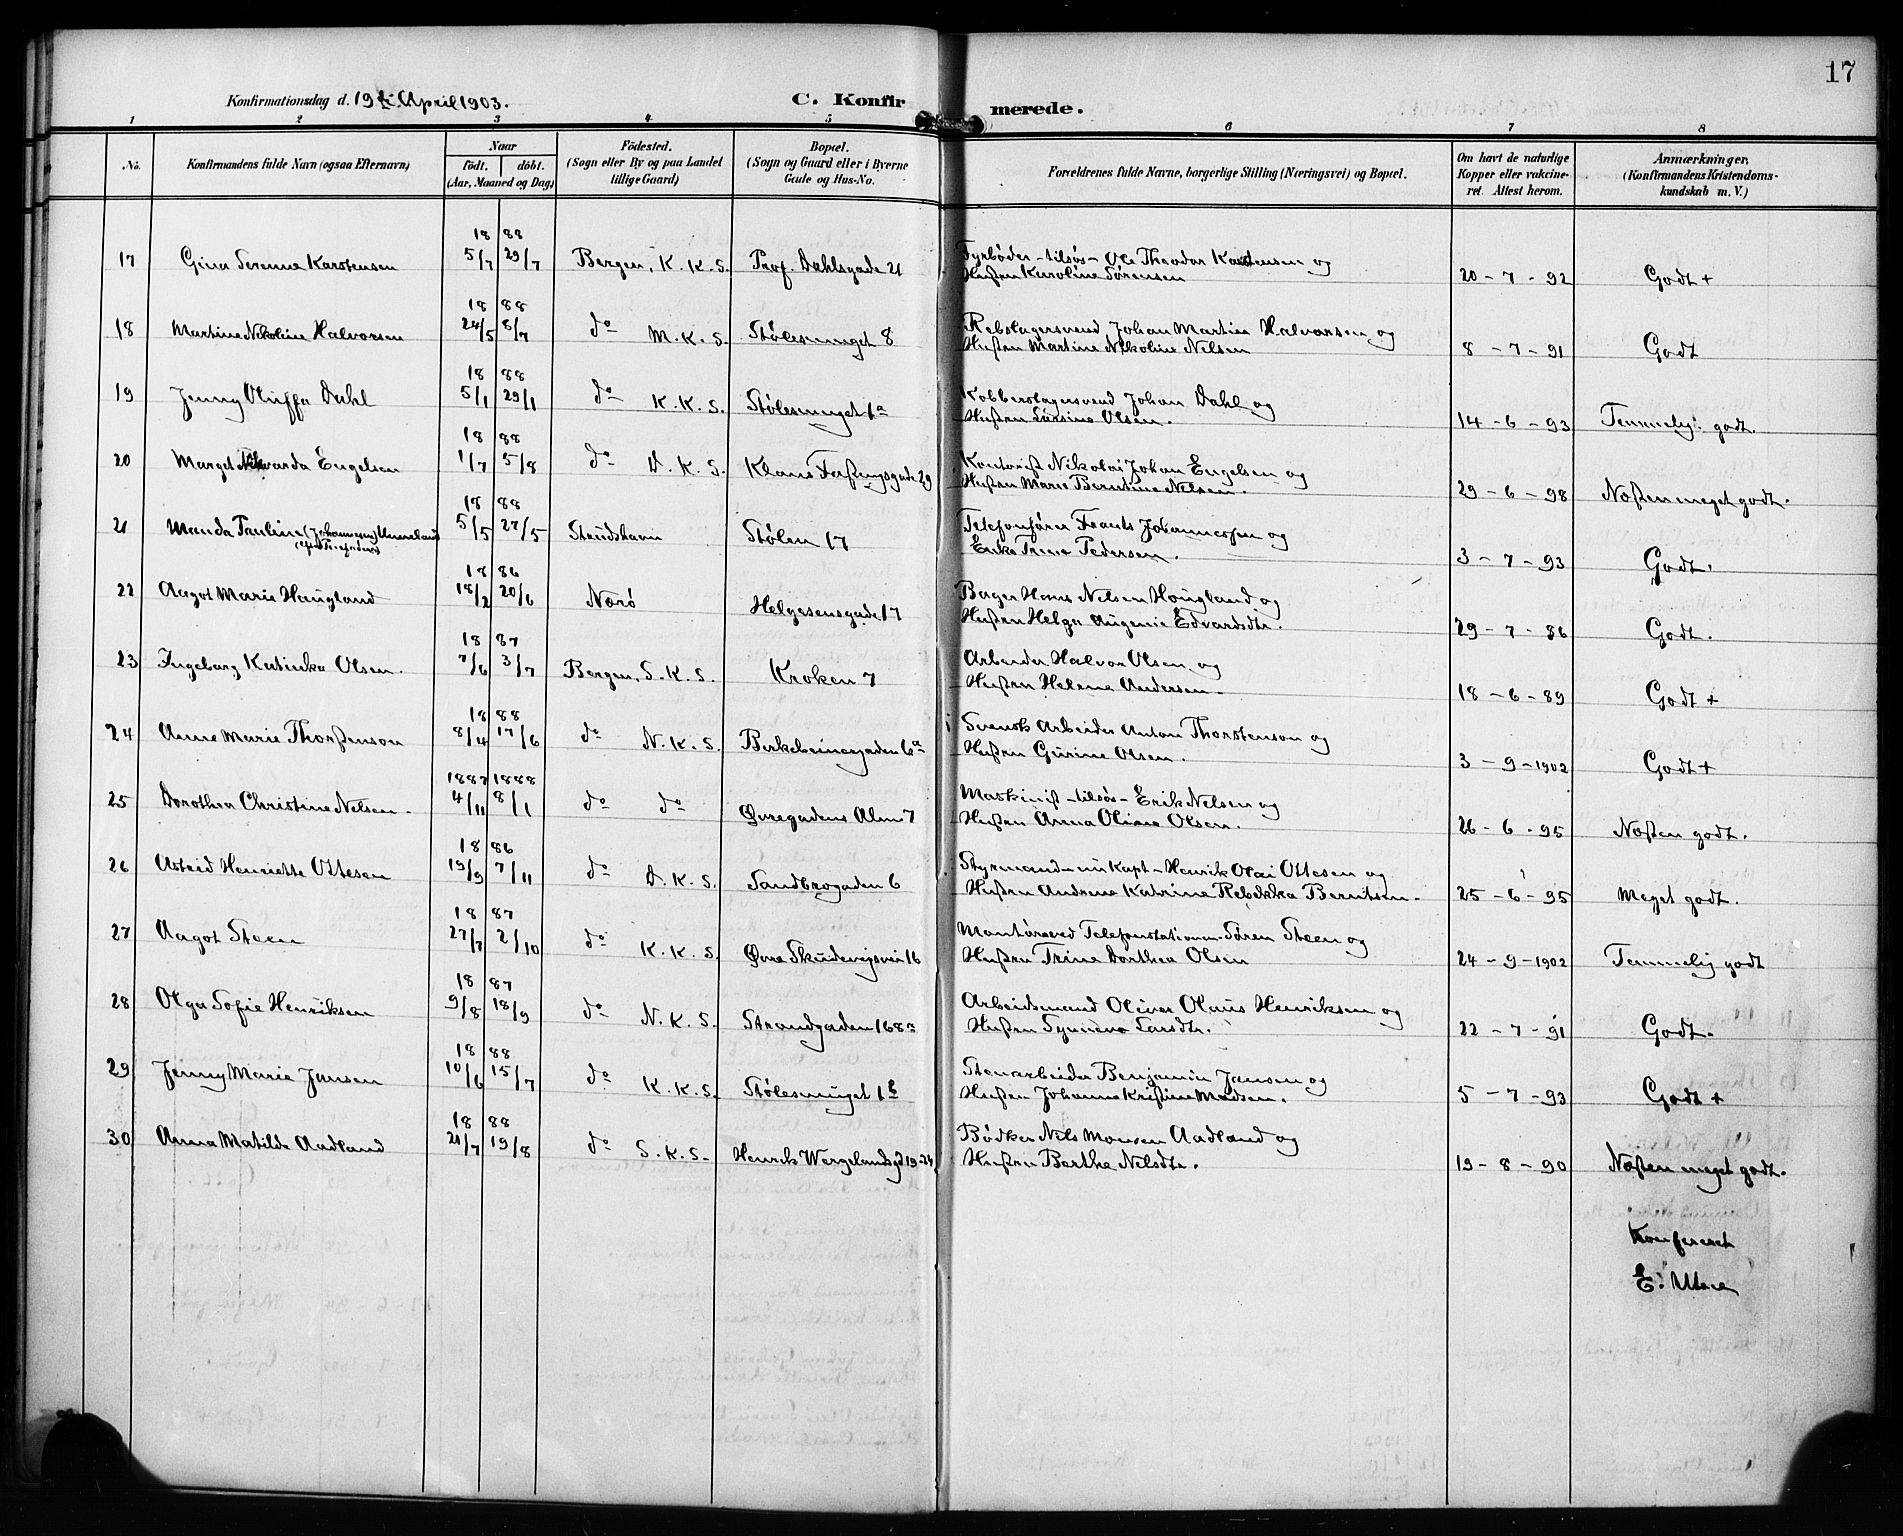 17
Konfirmationsdag d. 19de April 1903.
C. Konfirmerede.
1 2 3 4 5 6 7 8
No. Konfirmandens fulde Navn (ogsaa Efternavn) Naar født. døbt. (Aar, Maaned og Dag) Födested. (Sogn eller By og paa Landet tillige Gaard) Bopæl. (Sogn og Gaard eller i Byerne Gade og Hus-No. Forældrenes fulde Navne, borgerlige Stilling (Næringsvei) og Bopæl. Om havt de naturlige Kopper eller vaccineret. Attest herom. Anmærkninger. (Konfirmandens Kristendomskundskab m. V.)
18 88
17 Gina Serenne Karstensen 5/7 29/7 Bergen, K. K. S. Prof. Dahlsgade 21 Fyrbøder - tilsøs - Ole Theodor Karstensen og
Hustru Karoline Sørensen 20 - 7 - 92 Godt +
18 88
18 Martine Nikoline Halvorsen 24/5 8/7 do M. K. S. Stølesmuget 8 Rebslagersvend Johan Martin Halvorsen og
Hustru Martine Nikoline Nilsen 8 - 7 - 91 Godt
18 88
19 Jenny Oluffa Dahl 5/1 29/1 do K. K. S. Stølesmuget 1a Kobberslagersvend Johan Dahl og
Hustru Larsine Olsen. 14 - 6 - 93 Temmelig godt.
18 88
20 Marget Edvarda Engelsen 1/7 5/8 do D. K. S. Klaus Fastingsgade 29 Kontorist Nikolai Johan Engelsen og
Hustru Marie Berntine Nelsen. 29 - 6 - 98 Næsten meget godt.
18 88
21 Manda Pauline (Johannesen) Unneland 5/5 27/5 Strudshavn Stølen 17 Telefonfører Frants Johannessen og
Enke Trine Pedersen. 3 - 7 - 93 Godt.
18 86
22 Aagot Marie Haugland 18/2 20/6 Nærö Helgesensgade 17 Bager Hans Nelsen Hougland og
Hustru Helga Augenie Edvardsdtr. 29 - 7 - 86 Godt.
18 87
23 Ingeborg Katinka Olsen. 7/6 3/7 Bergen, S. K. S. Kroken 7 Arbeider Halvor Olsen og
Hustru Helene Andersen. 18 - 6 - 89 Godt +
18 88
24 Anne Marie Thorstenson 8/4 17/6 do N. K. S. Birkebeinergaden 6a Svensk Arbeider Anton Thorstenson og
Hustru Gurine Olsen. 3 - 9 - 1902 Godt +
1887 1888
25 Dorothea Christine Nelsen. 4/11 8/1 do do Øvregadens Alm. 7 Maskinist - tilsøs - Erik Nelsen og
Hustru Anna Oline Olsen. 26 - 6 - 95 Næsten godt.
18 86
26 Astrid Henriette Ottesen 19/9 7/11 do D. K. S. Sandbrogaden 6 Styrmand - nu Kapt - Henrik Olai Ottesen og
Hustru Andrine Katrine Rebekka Berntsen. 25 - 6 - 95 Meget godt.
18 87
27 Aagot Steen 27/7 2/10 do K. K. S. Øvre Skudevigsvei 16 Montør ved Telefonstationen - Søren Steen og
Hustru Trine Dorthea Olsen 24 - 9 - 1902 Temmelig godt
18 87
28 Olga Sofie Henriksen 9/8 18/9 do N. K. S. Strandgaden 168a Arbeidsmand Oliver Olaus Henriksen og
Hustru Synneve Larsdtr. 22 - 7 - 91 Godt.
18 88
29 Jenny Marie Jansen 10/6 15/7 do K. K. S. Stølesmuget 1b Stenarbeider Benjamin Jansen og
Hustru Johanne Kristine Madsen. 5 - 7 - 93 Godt +
18 88
30 Anna Matilde Aadland 21/7 19/8 do S. K. S. Henrik Wergelandsgd 19-24 Bødker Nils Monsen Aadland og
Hustru Berthe Nilsdtr. 19 - 8 - 90 Næsten meget godt.
Konfereret